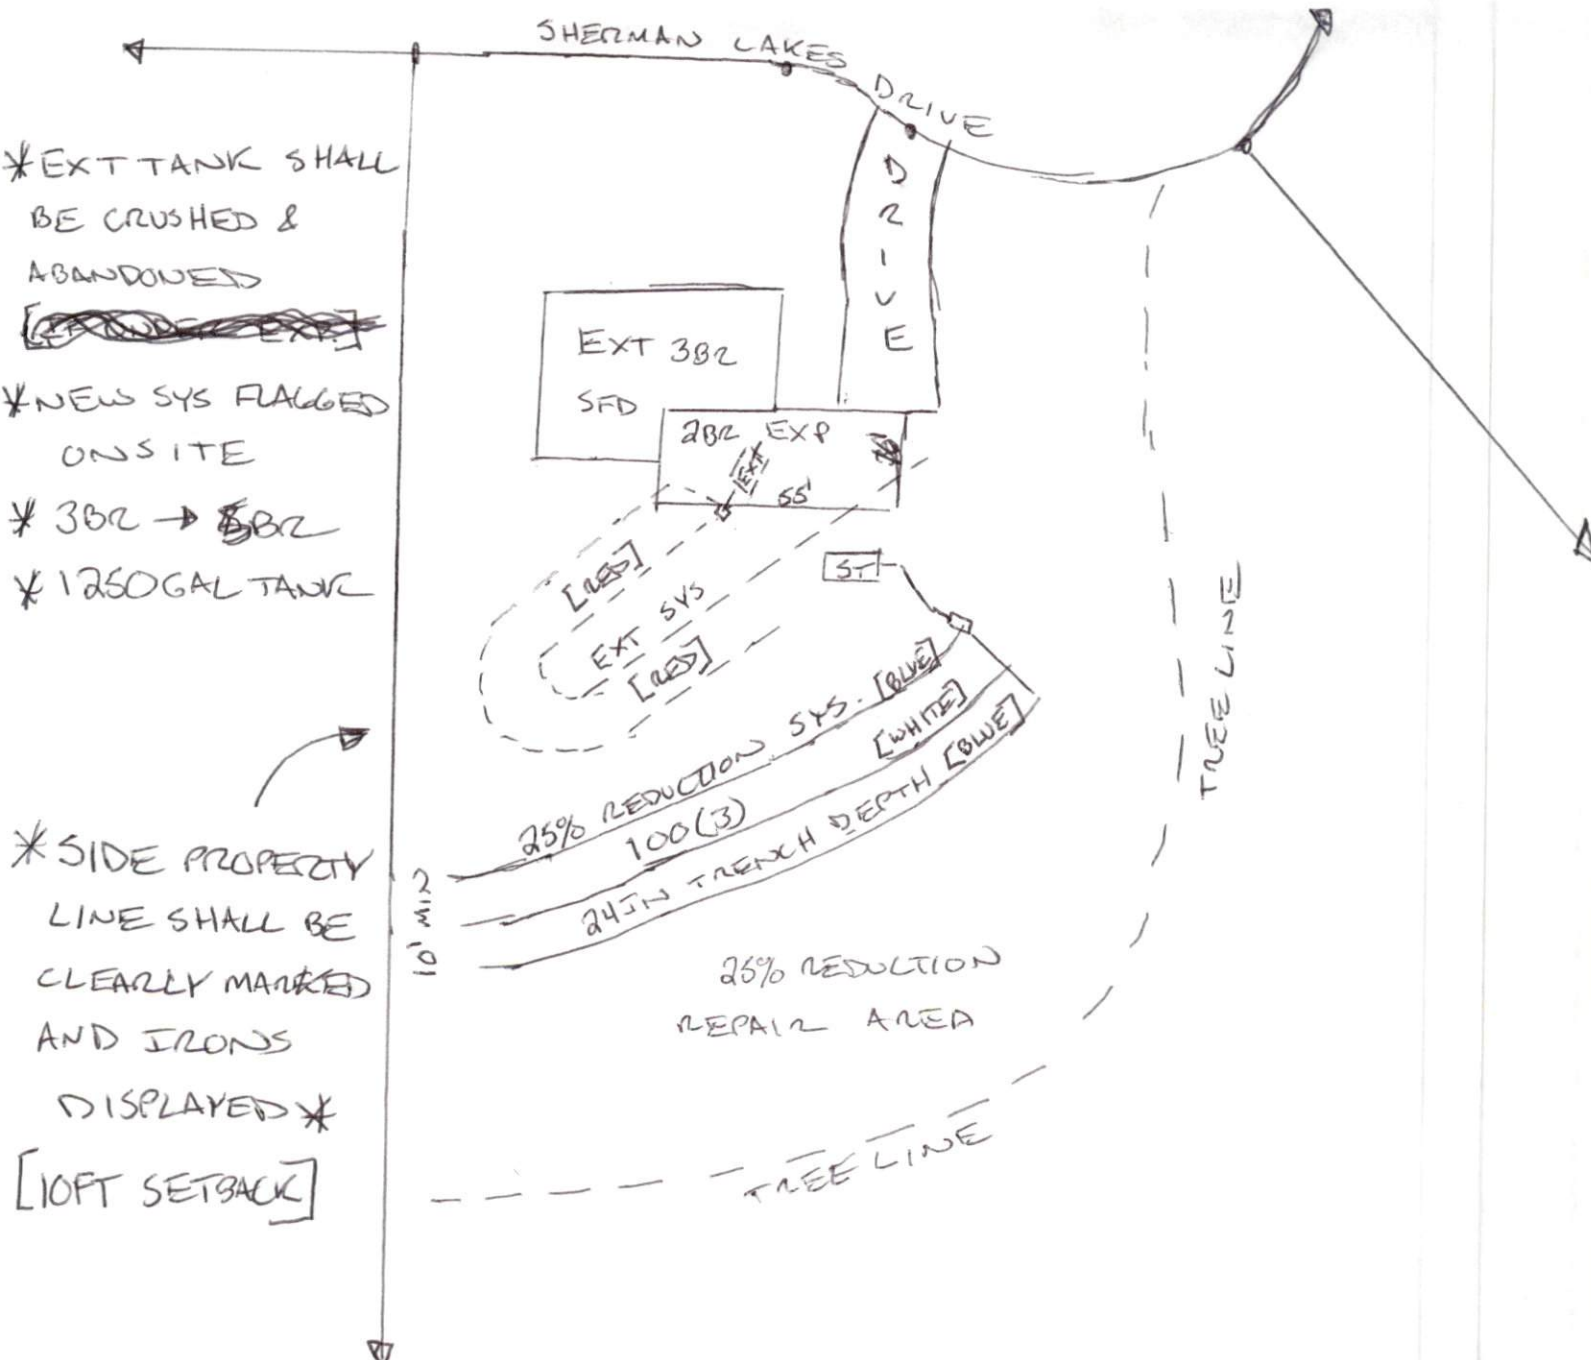 SHERMAN LAKES DRIVE
DRIVE
*EXT TANK SHALL
BE CRUSHED &
ABANDONED
*NEW SYS FLAGGED
ONSITE
* 3BR → 5BR
* 1250GAL TANK
*SIDE PROPERTY
LINE SHALL BE
CLEARLY MARKED
AND IRONS
DISPLAYED*
[10FT SETBACK]
EXT 3BR
SFD
2BR EXP
EXT
55'
[RED]
EXT SYS
[RED]
ST
25% REDUCTION SYS. [BLUE]
100(3) [WHITE]
24IN TRENCH DEPTH [BLUE]
10' MIN
25% REDUCTION
REPAIR AREA
TREE LINE
TREE LINE